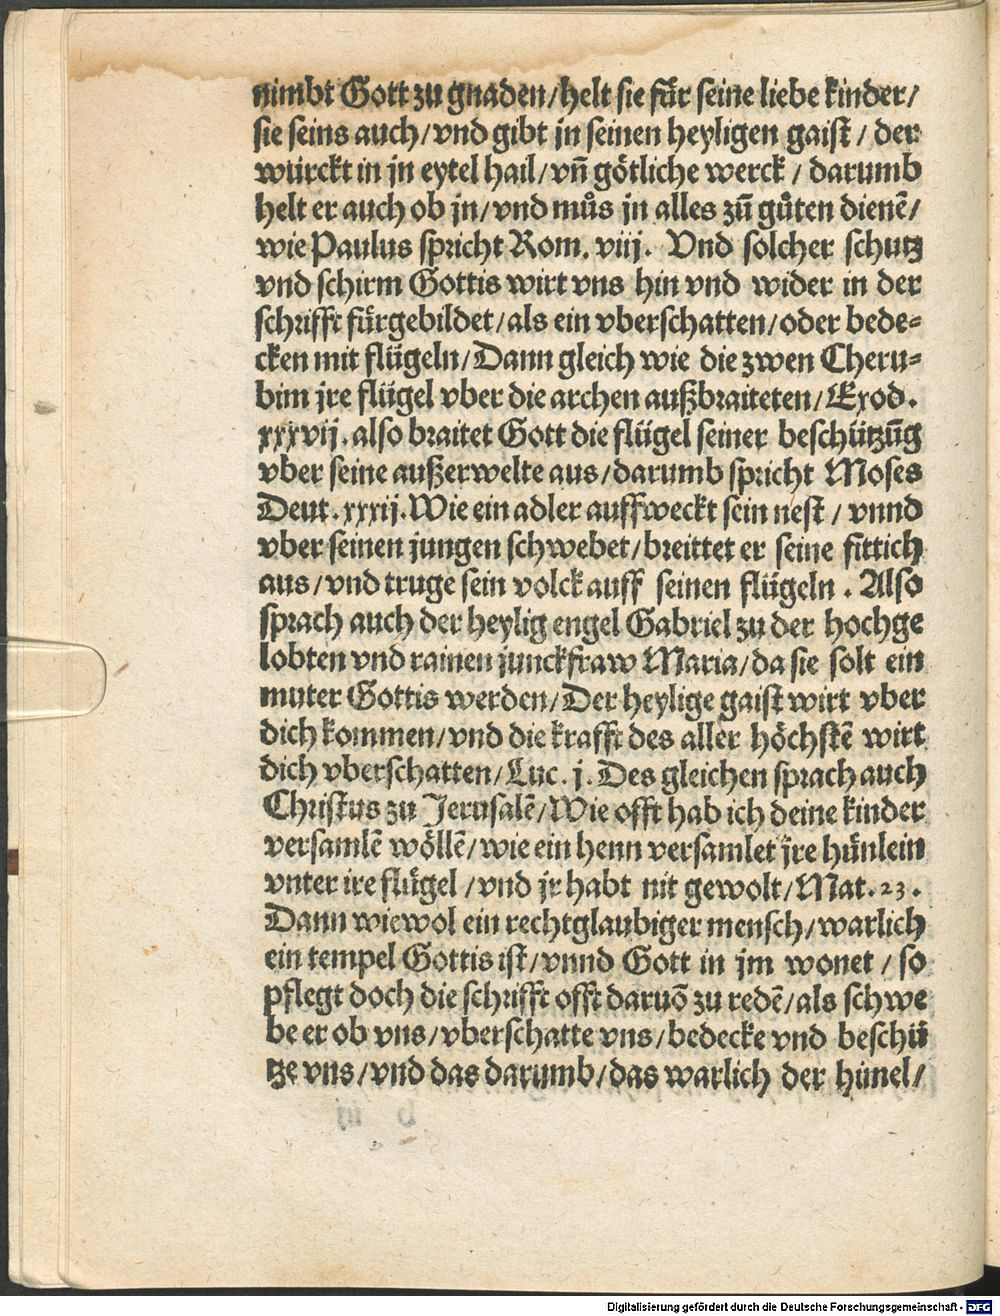 nimbt Gott zu gnaden/helt sie für seine liebe kinder/
sie seins auch/vnd gibt jn seinen heyligen gaist / der
würckt in jn eytel hail/vn̄ götliche werck / darumb
helt er auch ob jn/vnd můs jn alles zū gůten dienē/
wie Paulus spricht Rom. viij. Vnd solcher schutz
vnd schirm Gottis wirt vns hin vnd wider in der
schrifft fürgebildet/als ein vberschatten/oder bede⸗
cken mit flügeln/Dann gleich wie die zwen Cheru⸗
bim jre flügel vber die archen außbraiteten/Exod.
xxxvij.also braitet Gott die flügel seiner beschützūg
vber seine außerwelte aus/darumb spricht Moses
Deut.xxxij.Wie ein adler auffweckt sein nest / vnnd
vber seinen jungen schwebet/breittet er seine fittich
aus/vnd truge sein volck auff seinen flügeln . Also
sprach auch der heylig engel Gabriel zu der hochge
lobten vnd rainen junckfraw Maria/da sie solt ein
muter Gottis werden/Der heylige gaist wirt vber
dich kommen/vnd die krafft des aller höchstē wirt
dich vberschatten/Luc. j. Des gleichen sprach auch
Christus zu Jerusalē/Wie offt hab ich deine kinder
versamlē wöllē/wie ein henn versamlet jre hünlein
vnter ire flügel /vnd jr habt nit gewolt/Mat.23.
Dann wiewol ein rechtglaubiger mensch/warlich
ein tempel Gottis ist/vnnd Gott in jm wonet / so
pflegt doch die schrifft offt daruō zu redē/als schwe
be er ob vns/vberschatte vns/bedecke vnd beschü
tze vns/vnd das darumb/das warlich der hünel/
Digitalisierung gefördert durch die Deutsche Forschungsgemeinschaft - DFG